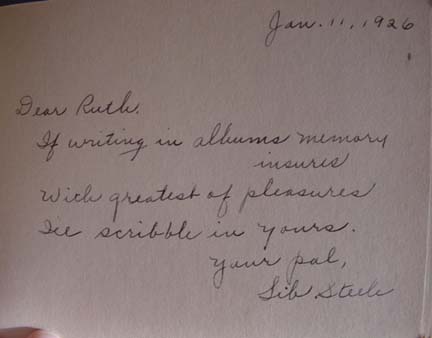 Jan. 11, 1926
Dear Ruth.
If writing in albums memory
insures
With greatest of pleasures
I'll scribble in yours.
Your pal,
Sib Steele